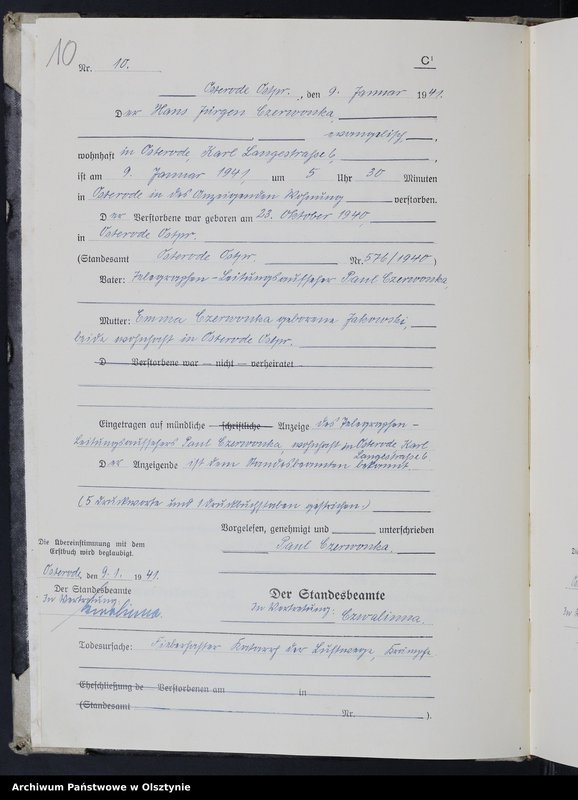 10
Nr. 10.
C¹
Osterode Ostpr., den 9. Januar 1941.
Der Hans Jürgen Czerwonka
evangelisch,
wohnhaft in Osterode, Karl Langestraße 6,
ist am 9. Januar 1941 um 5 Uhr 30 Minuten
in Osterode in des Anzeigenden Wohnung verstorben.
Der Verstorbene war geboren am 23. Oktober 1940,
in Osterode Ostpr.
(Standesamt Osterode Ostpr. Nr. 576/1940)
Vater: Telegraphen-Leitungsaufseher Paul Czerwonka,
Mutter: Emma Czerwonka geborene Jakowski,
beide wohnhaft in Osterode Ostpr.
D Verstorbene war — nicht — verheiratet
Eingetragen auf mündliche — schriftliche — Anzeige des Telegraphen-
Leitungsaufsehers Paul Czerwonka, wohnhaft in Osterode Karl
Langestraße 6
Der Anzeigende ist dem Standesbeamten bekannt.
(5 Druckworte und 1 Druckbuchstaben gestrichen.)
Vorgelesen, genehmigt und unterschrieben
Paul Czerwonka.
Die Übereinstimmung mit dem
Erstbuch wird beglaubigt.
Osterode, den 9. 1. 1941.
Der Standesbeamte
In Vertretung:
Czwalinna.
Der Standesbeamte
In Vertretung: Czwalinna.
Todesursache: Fieberhafter Katarrh der Luftwege, Krämpfe
Eheschließung de Verstorbenen am in
(Standesamt Nr. ).
Archiwum Państwowe w Olsztynie